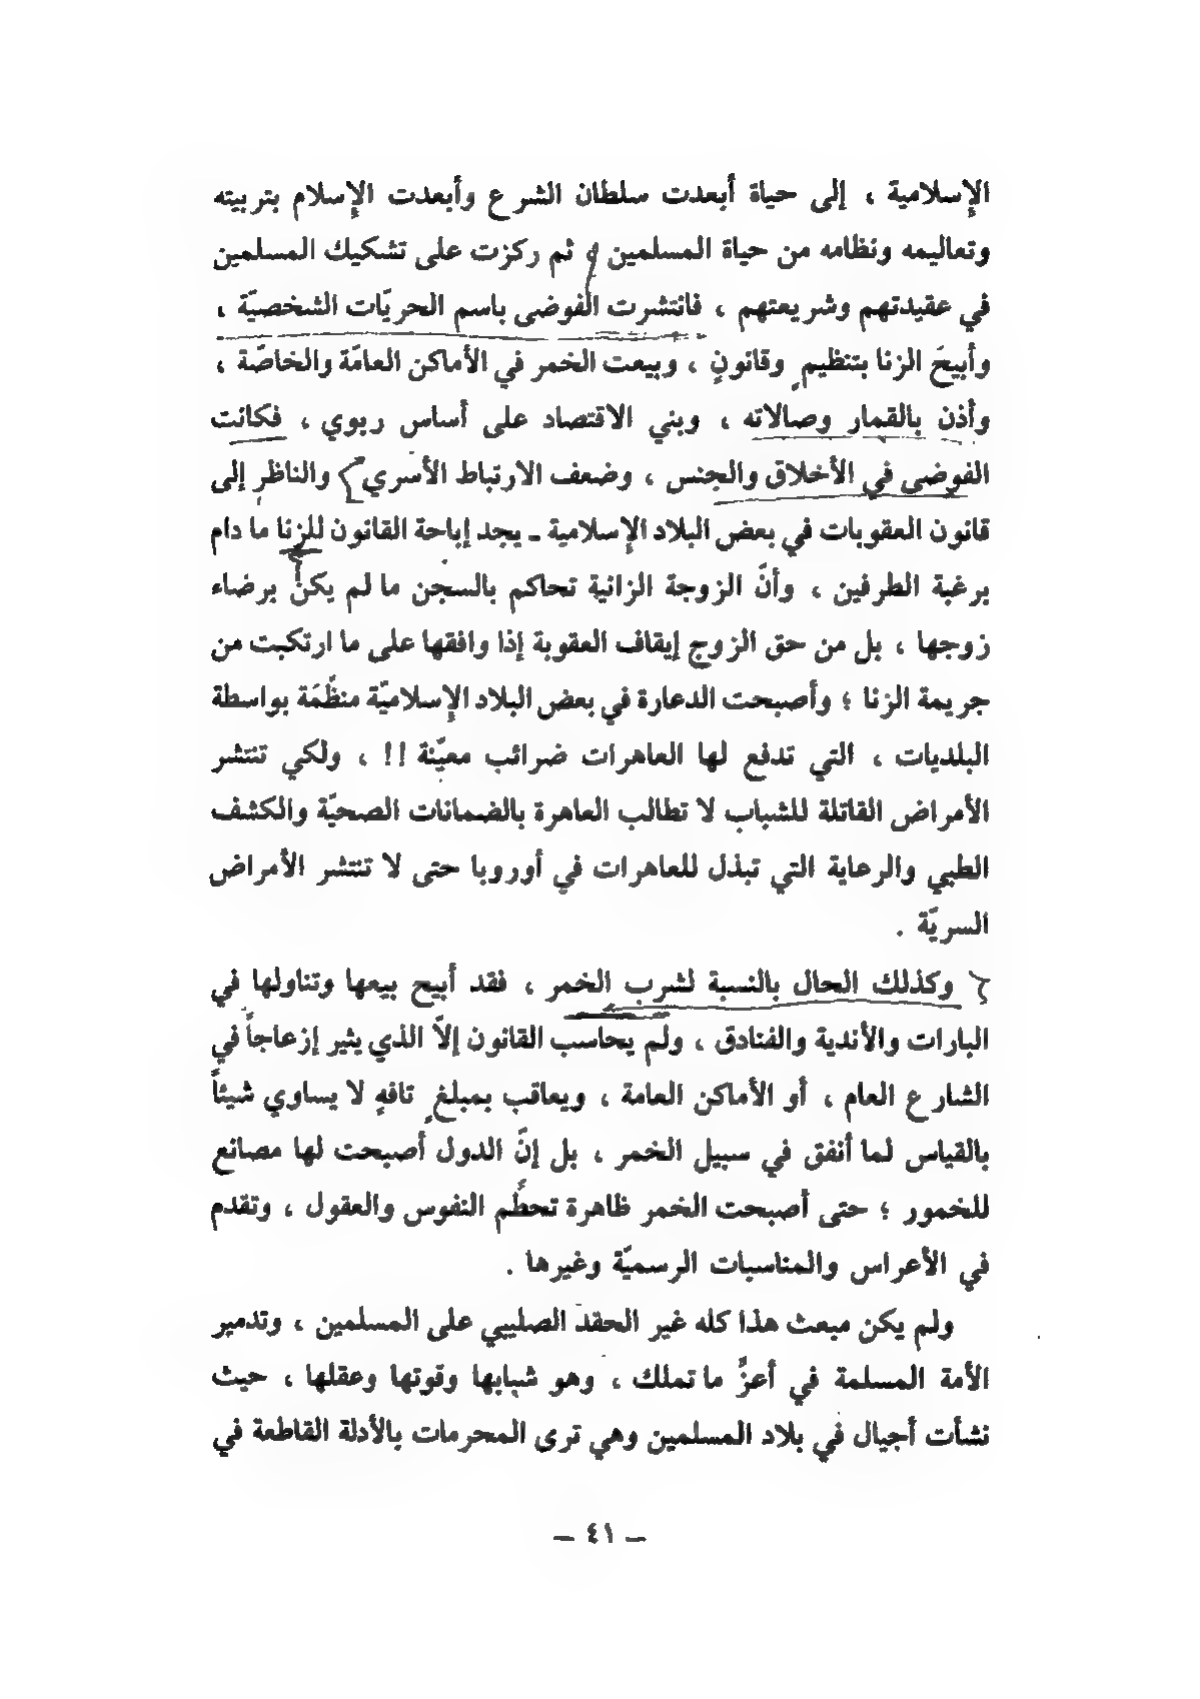 الإسلامية ، إلى حياة أبعدت سلطان الشرع وأبعدت الإسلام بتربيته
وتعاليمه ونظامه من حياة المسلمين ، ثم ركزت على تشكيك المسلمين
في عقيدتهم وشريعتهم ، فانتشرت الفوضى باسم الحريّات الشخصيّة ،
وأبيحَ الزنا بتنظيمٍ وقانونٍ ، وبيعت الخمر في الأماكن العامّة والخاصّة ،
وأذن بالقمار وصالاته ، وبني الاقتصاد على أساس ربوي ، فكانت
الفوضى في الأخلاق والجنس ، وضعف الارتباط الأسري والناظر إلى
قانون العقوبات في بعض البلاد الإسلامية ـ يجد إباحة القانون للزنا ما دام
برغبة الطرفين ، وأنّ الزوجة الزانية تحاكم بالسجن ما لم يكن برضاء
زوجها ، بل من حق الزوج إيقاف العقوبة إذا وافقها على ما ارتكبت من
جريمة الزنا ؛ وأصبحت الدعارة في بعض البلاد الإسلاميّة منظَّمَة بواسطة
البلديات ، التي تدفع لها العاهرات ضرائب معيّنة !! ، ولكي تنتشر
الأمراض القاتلة للشباب لا تطالب العاهرة بالضمانات الصحيّة والكشف
الطبي والرعاية التي تبذل للعاهرات في أوروبا حتى لا تنتشر الأمراض
السريّة .
وكذلك الحال بالنسبة لشرب الخمر ، فقد أبيح بيعها وتناولها في
البارات والأندية والفنادق ، ولم يحاسب القانون إلاّ الذي يثير إزعاجاً في
الشارع العام ، أو الأماكن العامة ، ويعاقب بمبلغٍ تافهٍ لا يساوي شيئاً
بالقياس لما أنفق في سبيل الخمر ، بل إنّ الدول أصبحت لها مصانع
للخمور ؛ حتى أصبحت الخمر ظاهرة تحطِّم النفوس والعقول ، وتقدم
في الأعراس والمناسبات الرسميّة وغيرها .
ولم يكن مبعث هذا كله غير الحقد الصليبي على المسلمين ، وتدمير
الأمة المسلمة في أعزِّ ما تملك ، وهو شبابها وقوتها وعقلها ، حيث
نشأت أجيال في بلاد المسلمين وهي ترى المحرمات بالأدلة القاطعة في
— ٤١ —